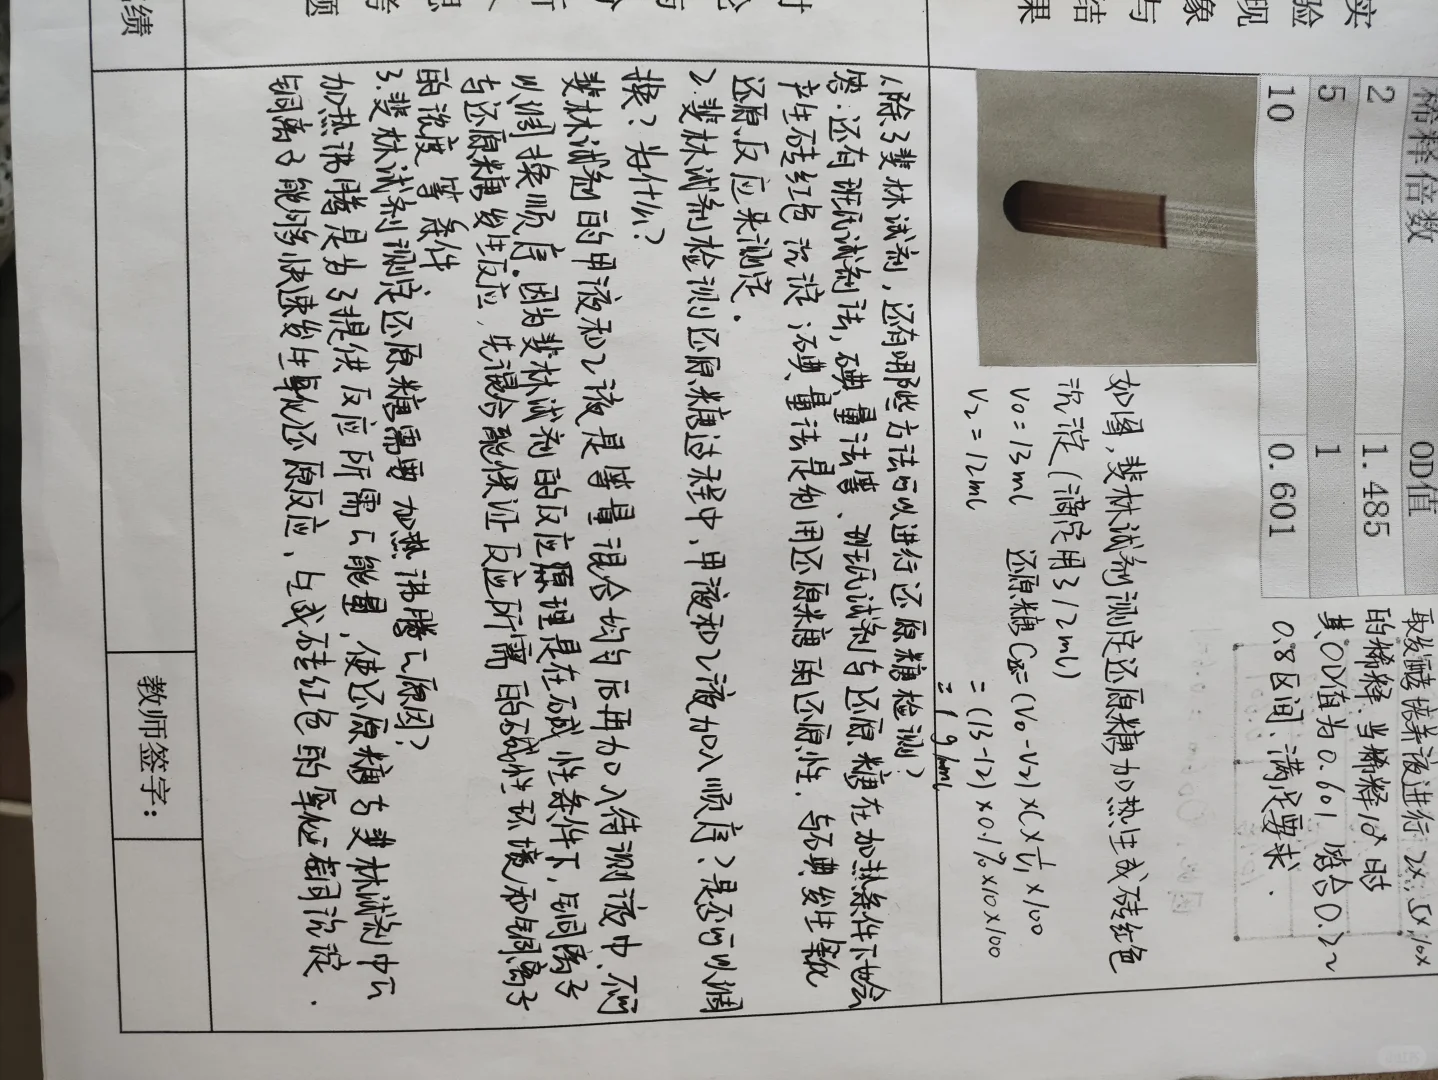 实验现象与结果
稀释倍数 OD值
2 1.485
5 1
10 0.601
取发酵培养液进行2×,5×,10×
的稀释.当稀释10×时
其OD值为0.601 贴合0.2~
0.8区间.满足要求.
如图,斐林试剂测定还原糖加热生成砖红色
沉淀(滴定用了12ml)
V0=13ml 还原糖C=(V0-V2)×C×1/V1×100
V2=12ml =(13-12)×0.1%×10×100
=1g/
讨
论
分
析
思
考
题
1.除了斐林试剂,还有哪些方法可以进行还原糖检测?
答.还有班氏试剂法,碘量法等、班氏试剂与还原糖在加热条件下也会
产生砖红色沉淀;碘量法是利用还原糖的还原性.与碘发生氧化
还原反应来测定.
2.斐林试剂检测还原糖过程中,甲液和乙液加入顺序?是否可以调
换?为什么?
斐林试剂的甲液和乙液是等量混合均匀后再加入待测液中.不可
以调换顺序.因为斐林试剂的反应原理是在碱性条件下,铜离子
与还原糖发生反应,先混合能保证反应所需的碱性环境和铜离子
的浓度等条件
3.斐林试剂测定还原糖需要加热沸腾的原因?
加热沸腾是为了提供反应所需的能量,使还原糖与斐林试剂中的
铜离子能够快速发生氧化还原反应,生成砖红色的氧化亚铜沉淀.
成绩 教师签字: